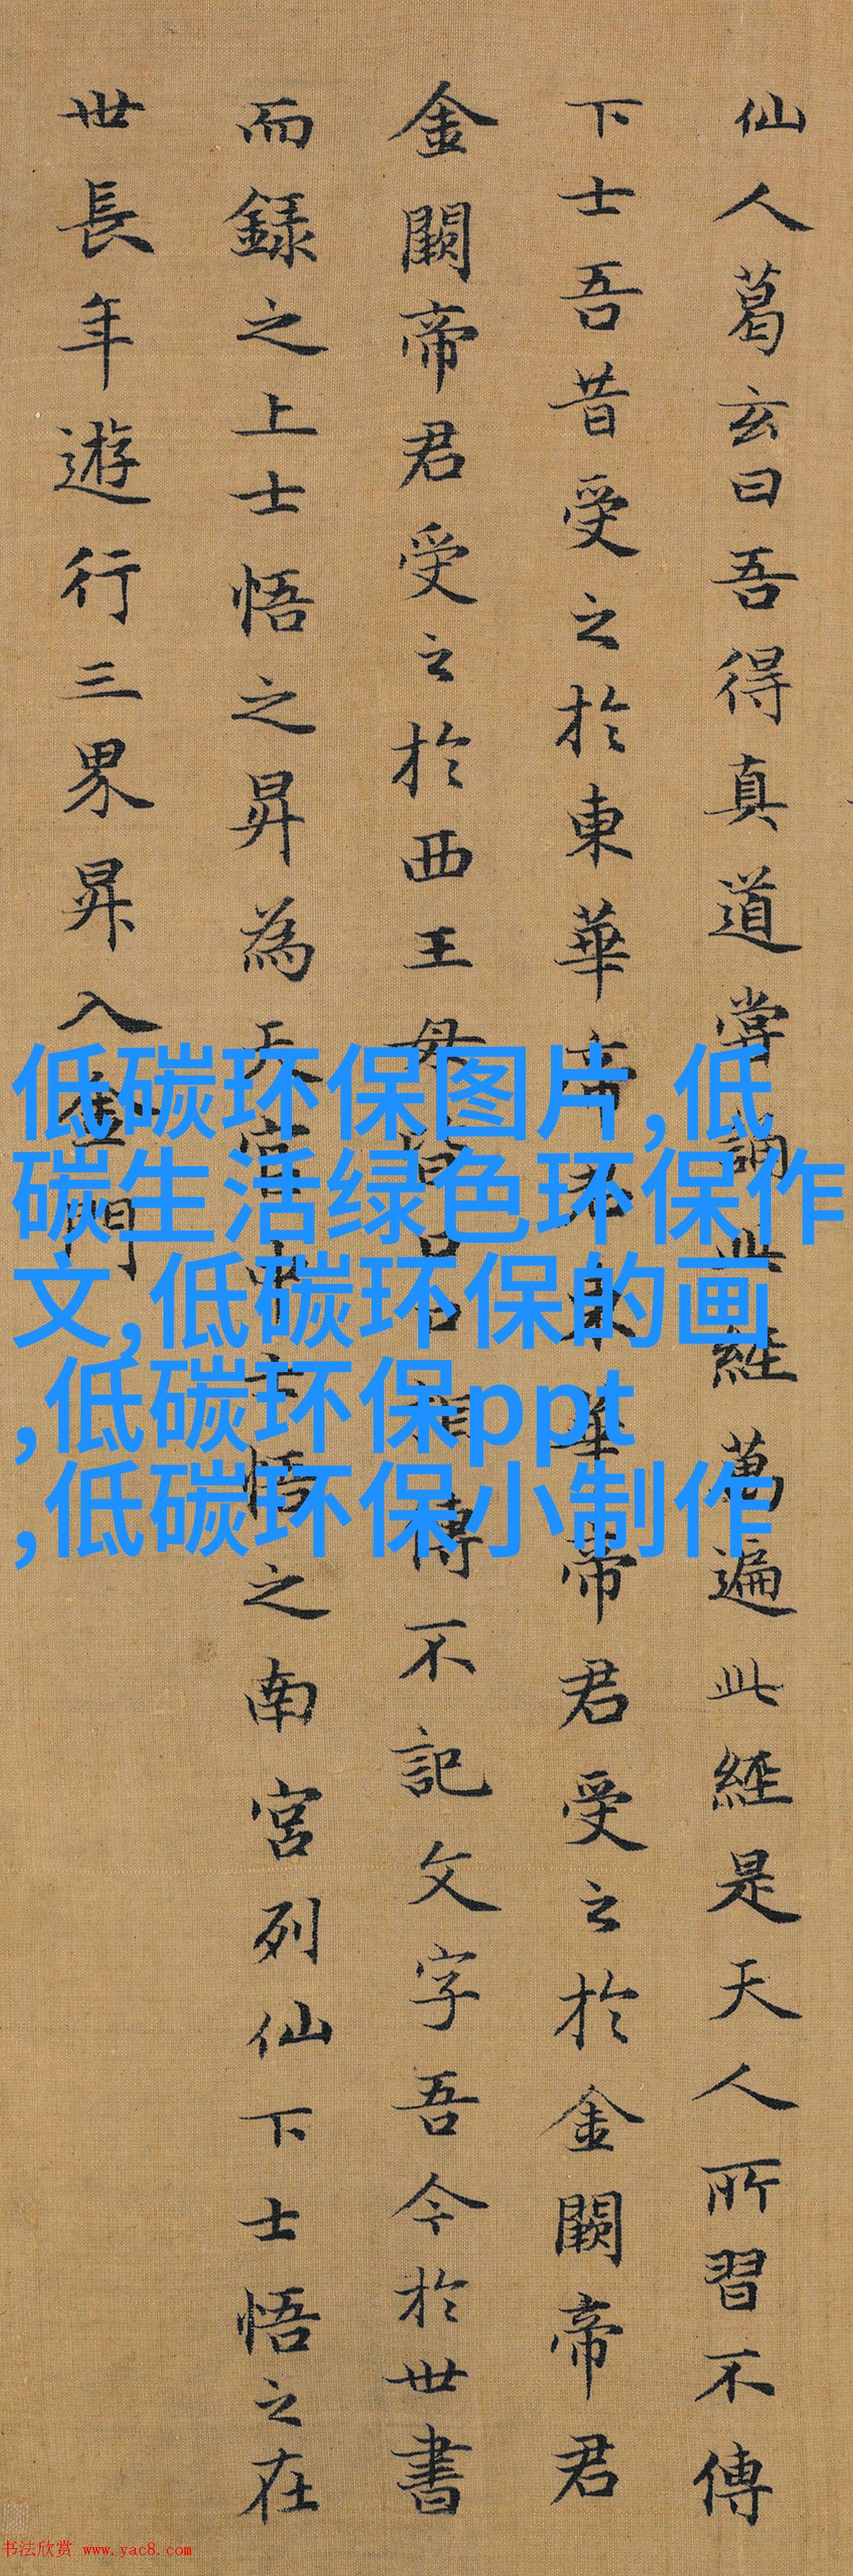 仙人葛玄曰吾得真道當誦此經萬遍此經是天人所習不傳
下士吾昔受之於東華帝君東華帝君受之於金闕帝君
金闕帝君受之於西王母皆口口相傳不記文字吾今於世書
而録之上士悟之昇為天官中士悟之南宮列仙下士悟之在
世長年遊行三界昇入金門
低碳环保图片,低
碳生活绿色环保作
文,低碳环保的画
,低碳环保ppt
,低碳环保小制作
书法欣赏 www.yac8.com